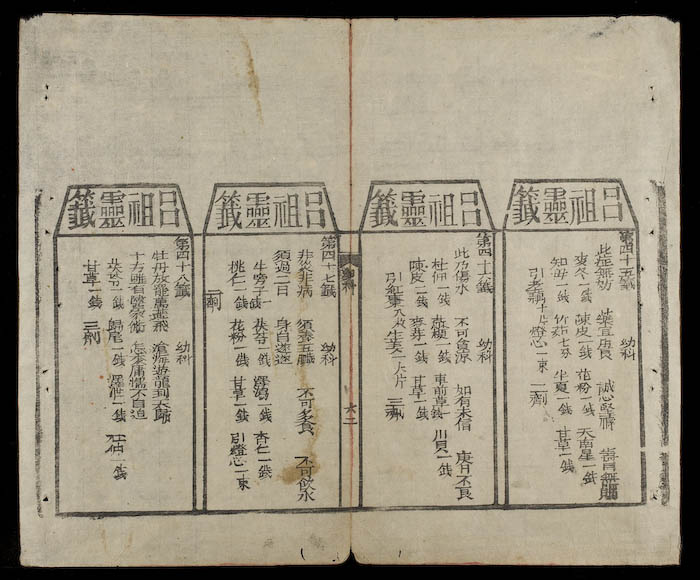 呂祖靈籤
第四十五籤 幼科
此症無妨 藥宜良 誠心堅禱
麥冬一錢 陳皮一錢 花粉一錢 天南星一錢
知母一錢 竹茹七分 半夏一錢 甘草一錢
十片 燈心一束 二劑
呂祖靈籤
第四十六籤 幼科
此乃傷水 不可食涼 如有未信
杜仲一錢 車前草錢 川貝一錢
陳皮一錢 麥芽一錢 甘草一錢
引紅棗八枚生姜一大片 三劑
幼科
六二
呂祖靈籤
第四十七籤 幼科
非災非病 須養五臟 不可多食 不可飲水
須過二日 身自
牛旁子一錢 茯苓一錢 澤瀉一錢 杏仁一錢
桃仁一錢 花粉一錢 甘草一錢 引燈心一束
二劑
呂祖靈籤
第四十八籤 幼科
牡丹放 飛 滄海遊龍到天
十方雖有醫家術 怎奈庸儒不自迫
茯苓一錢 歸尾一錢 一錢 一錢
甘草一錢 三劑